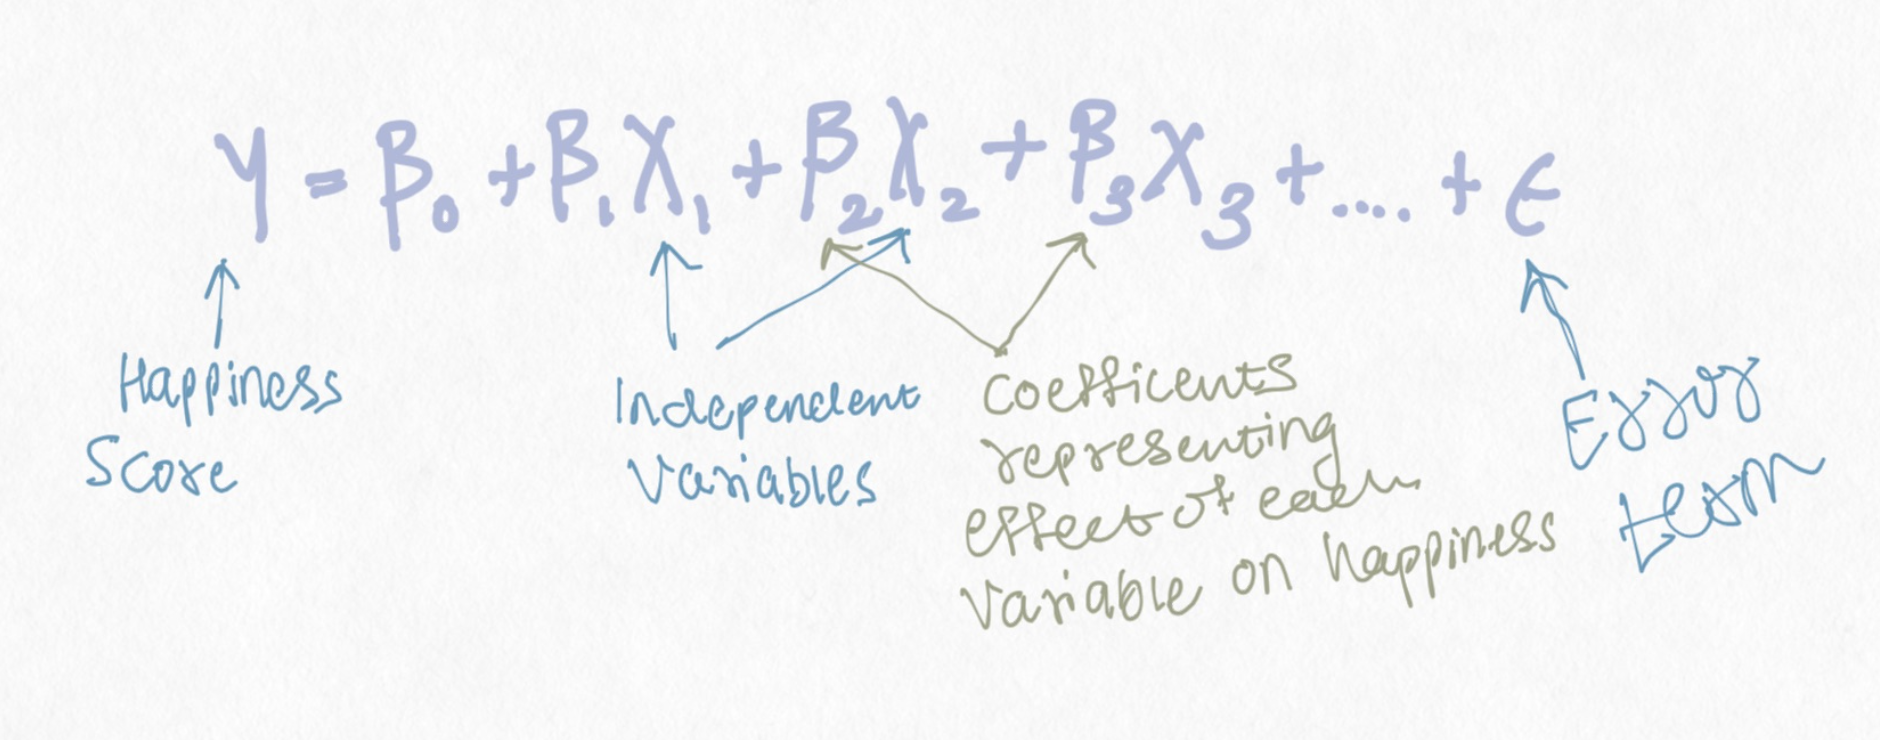 Y = β₀ + β₁X₁ + β₂X₂ + β₃X₃ + .... + ϵ
Happiness
Score
Independent
Variables
Coefficents
representing
effect of each
variable on happiness
Error
term